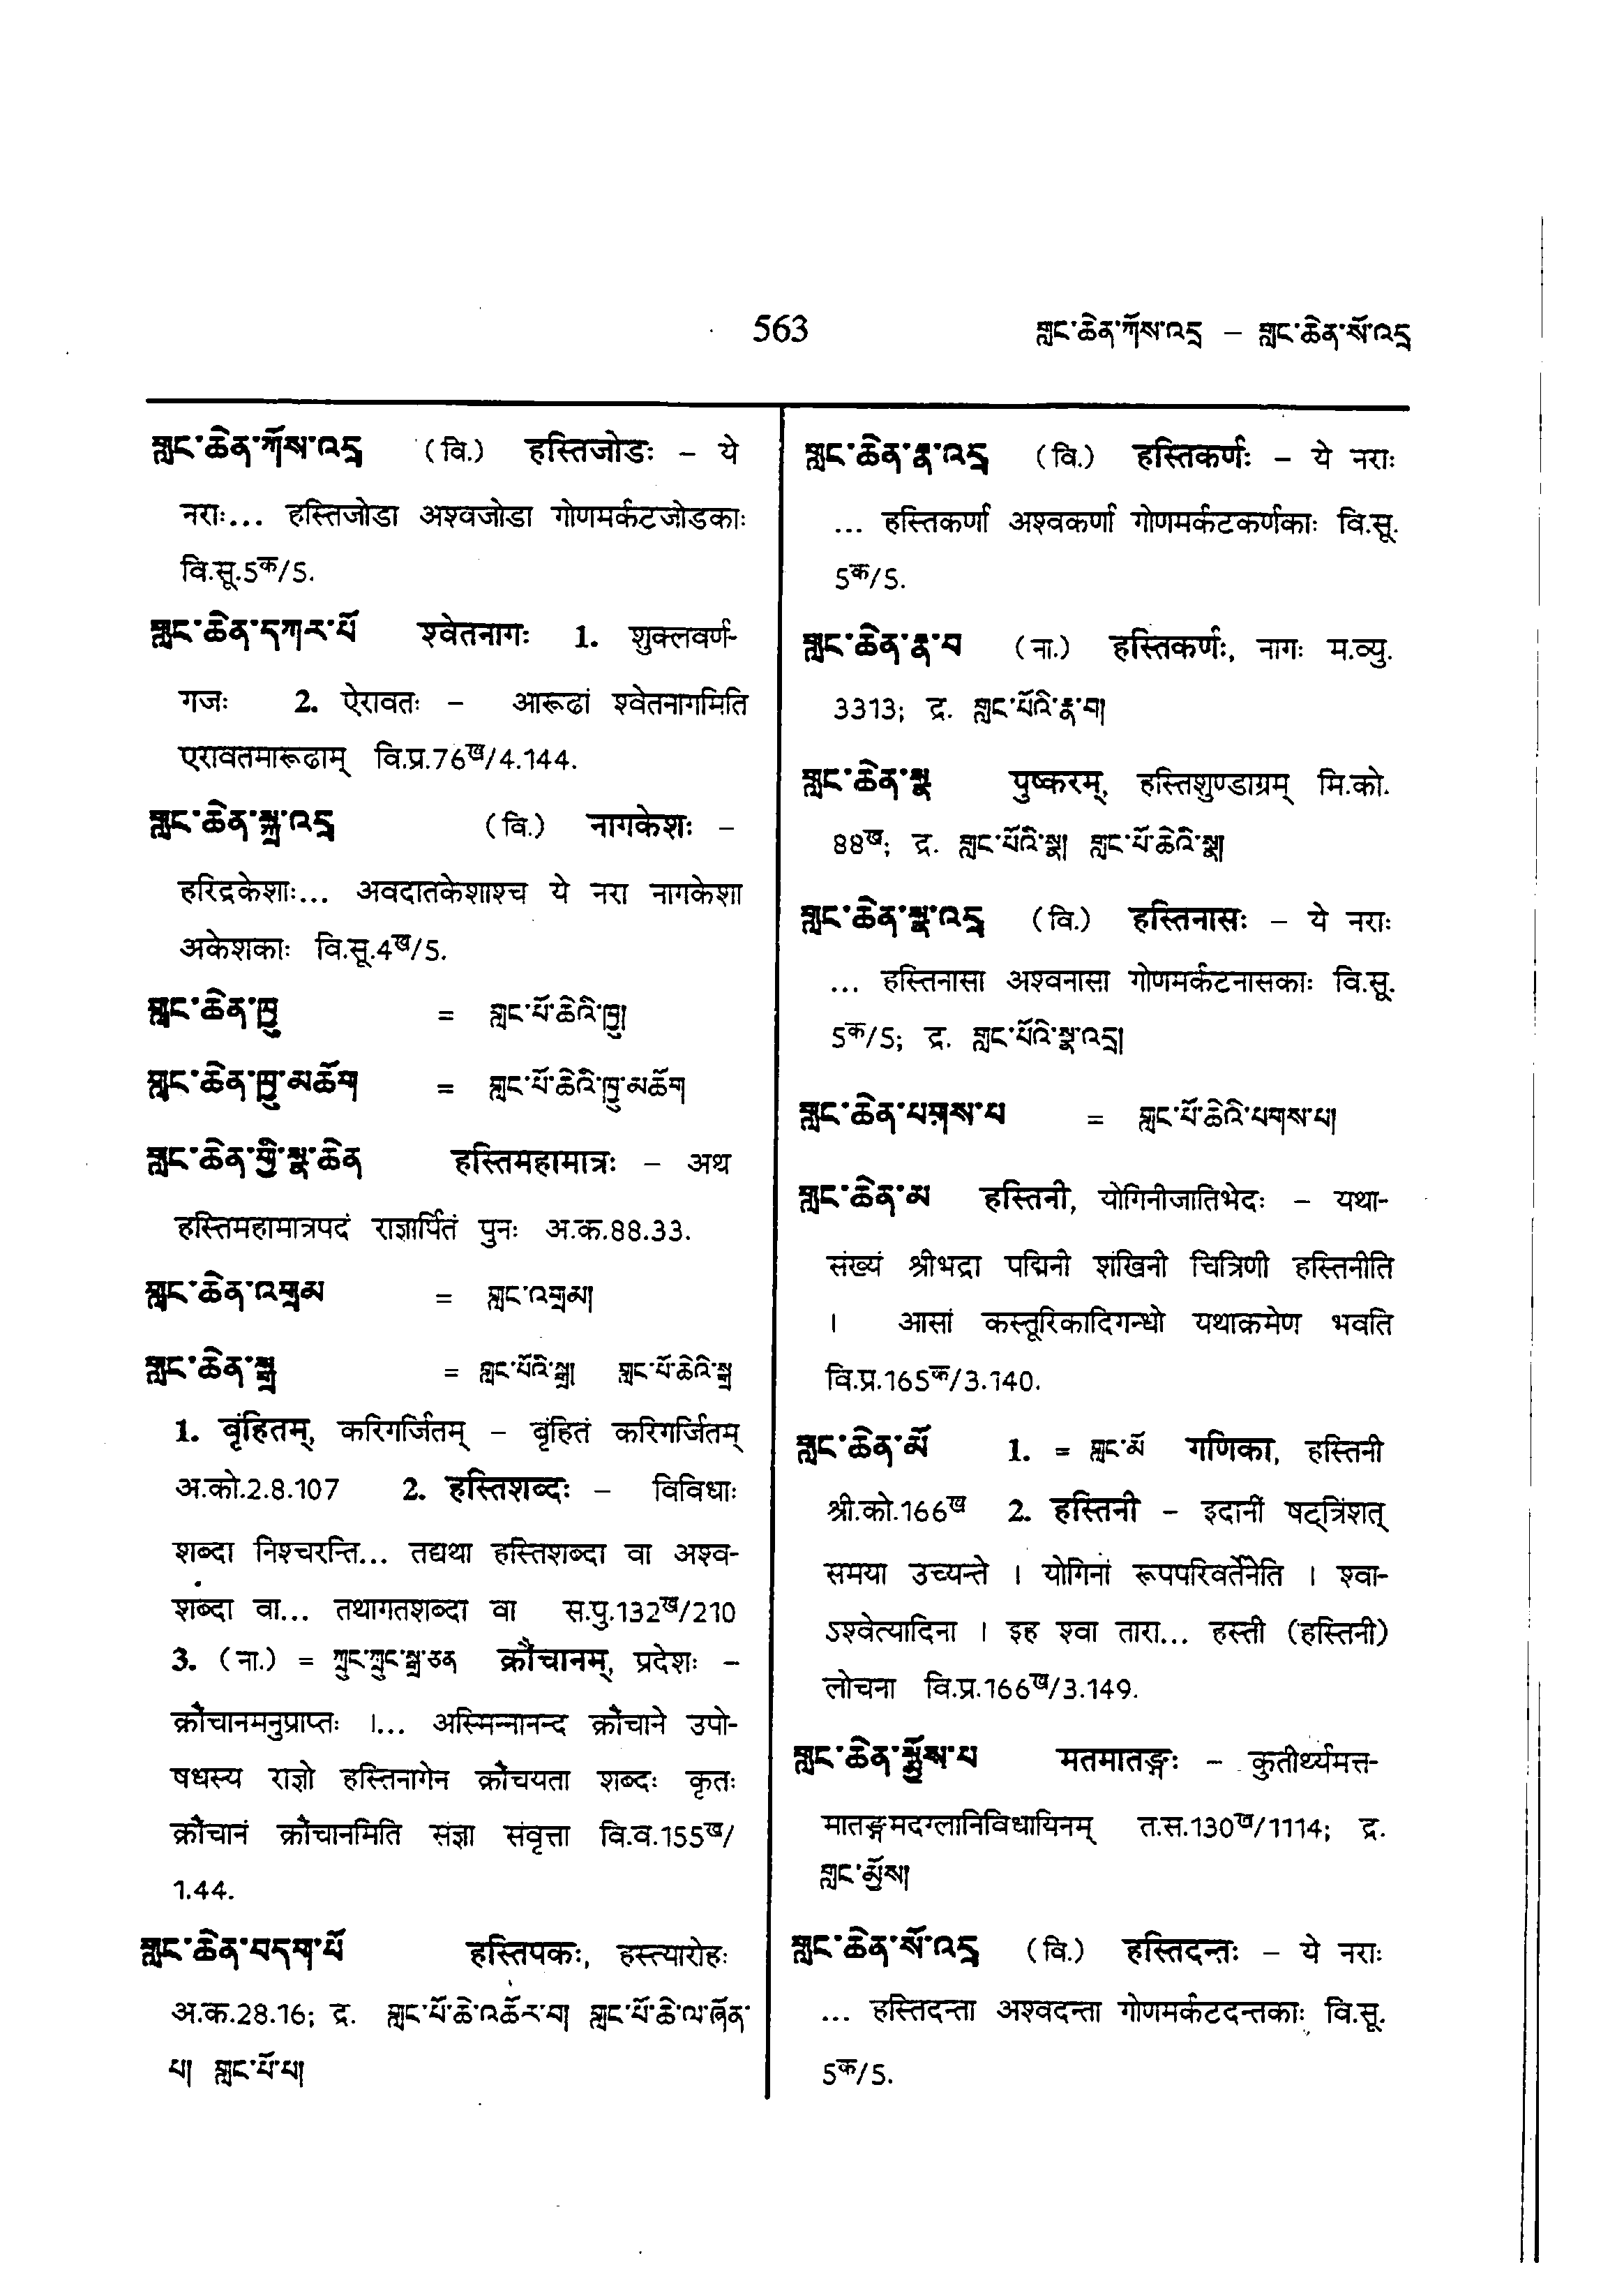 563
གླང་ཆེན་ཀོས་འདྲ – གླང་ཆེན་སོ་འདྲ
གླང་ཆེན་ཀོས་འདྲ (वि.) हस्तिजोडः – ये
नराः... हस्तिजोडा अश्वजोडा गोणमर्कटजोडकाः
वि.सू.5क/5.
གླང་ཆེན་དཀར་པོ श्वेतनागः 1. शुक्लवर्ण-
गजः 2. ऐरावतः – आरूढां श्वेतनागमिति
एरावतमारूढाम् वि.प्र.76ख/4.144.
གླང་ཆེན་སྐྲ་འདྲ (वि.) नागकेशः –
हरिद्रकेशाः... अवदातकेशाश्च ये नरा नागकेशा
अकेशकाः वि.सू.4ख/5.
གླང་ཆེན་ཁྲུ = གླང་པོ་ཆེའི་ཁྲུ།
གླང་ཆེན་ཁྲུ་མཆོག = གླང་པོ་ཆེའི་ཁྲུ་མཆོག
གླང་ཆེན་གྱི་སྣ་ཆེན हस्तिमहामात्रः – अथ
हस्तिमहामात्रपदं राज्ञार्पितं पुनः अ.क.88.33.
གླང་ཆེན་འགྲམ = གླང་འགྲམ།
གླང་ཆེན་སྒྲ = གླང་པོའི་སྒྲ། གླང་པོ་ཆེའི་སྒྲ
1. बृंहितम्, करिगर्जितम् – बृंहितं करिगर्जितम्
अ.को.2.8.107 2. हस्तिशब्दः – विविधाः
शब्दा निश्चरन्ति... तद्यथा हस्तिशब्दा वा अश्व-
शब्दा वा... तथागतशब्दा वा स.पु.132ख/210
3. (ना.) = ཀྲུང་ཀྲུང་སྒྲ་ཅན क्रौंचानम्, प्रदेशः –
क्रौंचानमनुप्राप्तः ।... अस्मिन्नानन्द क्रौंचाने उपो-
षधस्य राज्ञो हस्तिनागेन क्रौंचयता शब्दः कृतः
क्रौंचानं क्रौंचानमिति संज्ञा संवृत्ता वि.व.155ख/
1.44.
གླང་ཆེན་བདག་པོ हस्तिपकः, हस्त्यारोहः
अ.क.28.16; द्र. གླང་པོ་ཆེ་འཆོར་བ། གླང་པོ་ཆེ་ལ་ཞོན་
པ། གླང་པོ་པ།
གླང་ཆེན་རྣ་འདྲ (वि.) हस्तिकर्णः – ये नराः
... हस्तिकर्णा अश्वकर्णा गोणमर्कटकर्णकाः वि.सू.
5क/5.
གླང་ཆེན་རྣ་བ (ना.) हस्तिकर्णः, नागः म.व्यु.
3313; द्र. གླང་པོའི་རྣ་བ།
གླང་ཆེན་སྣ पुष्करम्, हस्तिशुण्डाग्रम् मि.को.
88ख; द्र. གླང་པོའི་སྣ། གླང་པོ་ཆེའི་སྣ།
གླང་ཆེན་སྣ་འདྲ (वि.) हस्तिनासः – ये नराः
... हस्तिनासा अश्वनासा गोणमर्कटनासकाः वि.सू.
5क/5; द्र. གླང་པོའི་སྣ་འདྲ།
གླང་ཆེན་པགས་པ = གླང་པོ་ཆེའི་པགས་པ།
གླང་ཆེན་མ हस्तिनी, योगिनीजातिभेदः – यथा-
संख्यं श्रीभद्रा पद्मिनी शंखिनी चित्रिणी हस्तिनीति
। आसां कस्तूरिकादिगन्धो यथाक्रमेण भवति
वि.प्र.165क/3.140.
གླང་ཆེན་མོ 1. = གླང་མོ गणिका, हस्तिनी
श्री.को.166ख 2. हस्तिनी – इदानीं षट्त्रिंशत्
समया उच्यन्ते । योगिनां रूपपरिवर्तेनेति । श्वा-
ऽश्वेत्यादिना । इह श्वा तारा... हस्ती (हस्तिनी)
लोचना वि.प्र.166ख/3.149.
གླང་ཆེན་སྨྱོས་པ मतमातङ्गः – कुतीर्थ्यमत्त-
मातङ्गमदग्लानिविधायिनम् त.स.130ख/1114; द्र.
གླང་སྨྱོས།
གླང་ཆེན་སོ་འདྲ (वि.) हस्तिदन्तः – ये नराः
... हस्तिदन्ता अश्वदन्ता गोणमर्कटदन्तकाः वि.सू.
5क/5.